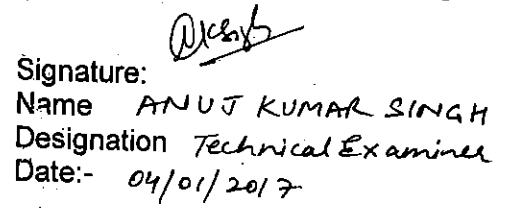 Signature:
Name ANUJ KUMAR SINGH
Designation Technical Examiner
Date:- 04/01/2017